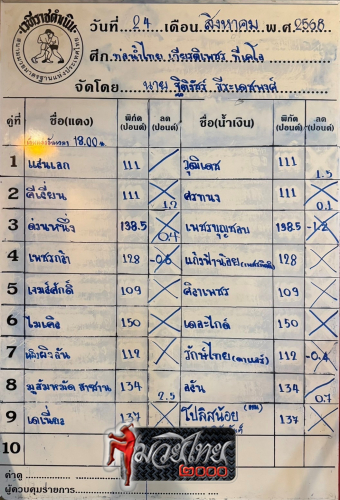 เวทีราชดำเนิน
วันที่ 24 เดือน สิงหาคม พ.ศ 2566
ศึก ท่อน้ำไทย เกียรติเพชร ทีเคโอ
จัดโดย นาย
คู่ที่ ชื่อ(แดง) พิกัด (ปอนด์) ลด (ปอนด์) ชื่อ(น้ำเงิน) พิกัด (ปอนด์) ลด (ปอนด์)
18.00 น
1 แสนเอก 111 วุฒิเดช 111 1.5
2 คีเรียน 111 1.2 ศรทนง 111 0.1
3 ด่านหนึ่ง 138.5 0.4 เพชรบุญชอบ 138.5 -1.2
4 เพชรกล้า 128 แก้งฟ้าน้อย 128
5 เจมส์ศักดิ์ 109 ศิลาเพชร 109
6 ไมเคิล 150 เดอะไกด์ 150
7 112 รักษ์ไทย 112 -0.4
8 มูฮัมหมัด 134 2.5 134 0.7
9 เดเนี่ยล 137 โปลิสน้อย 137
10
มวยไทย
๒๐๐๐
ค่าดู
ผู้ควบคุมรายการ